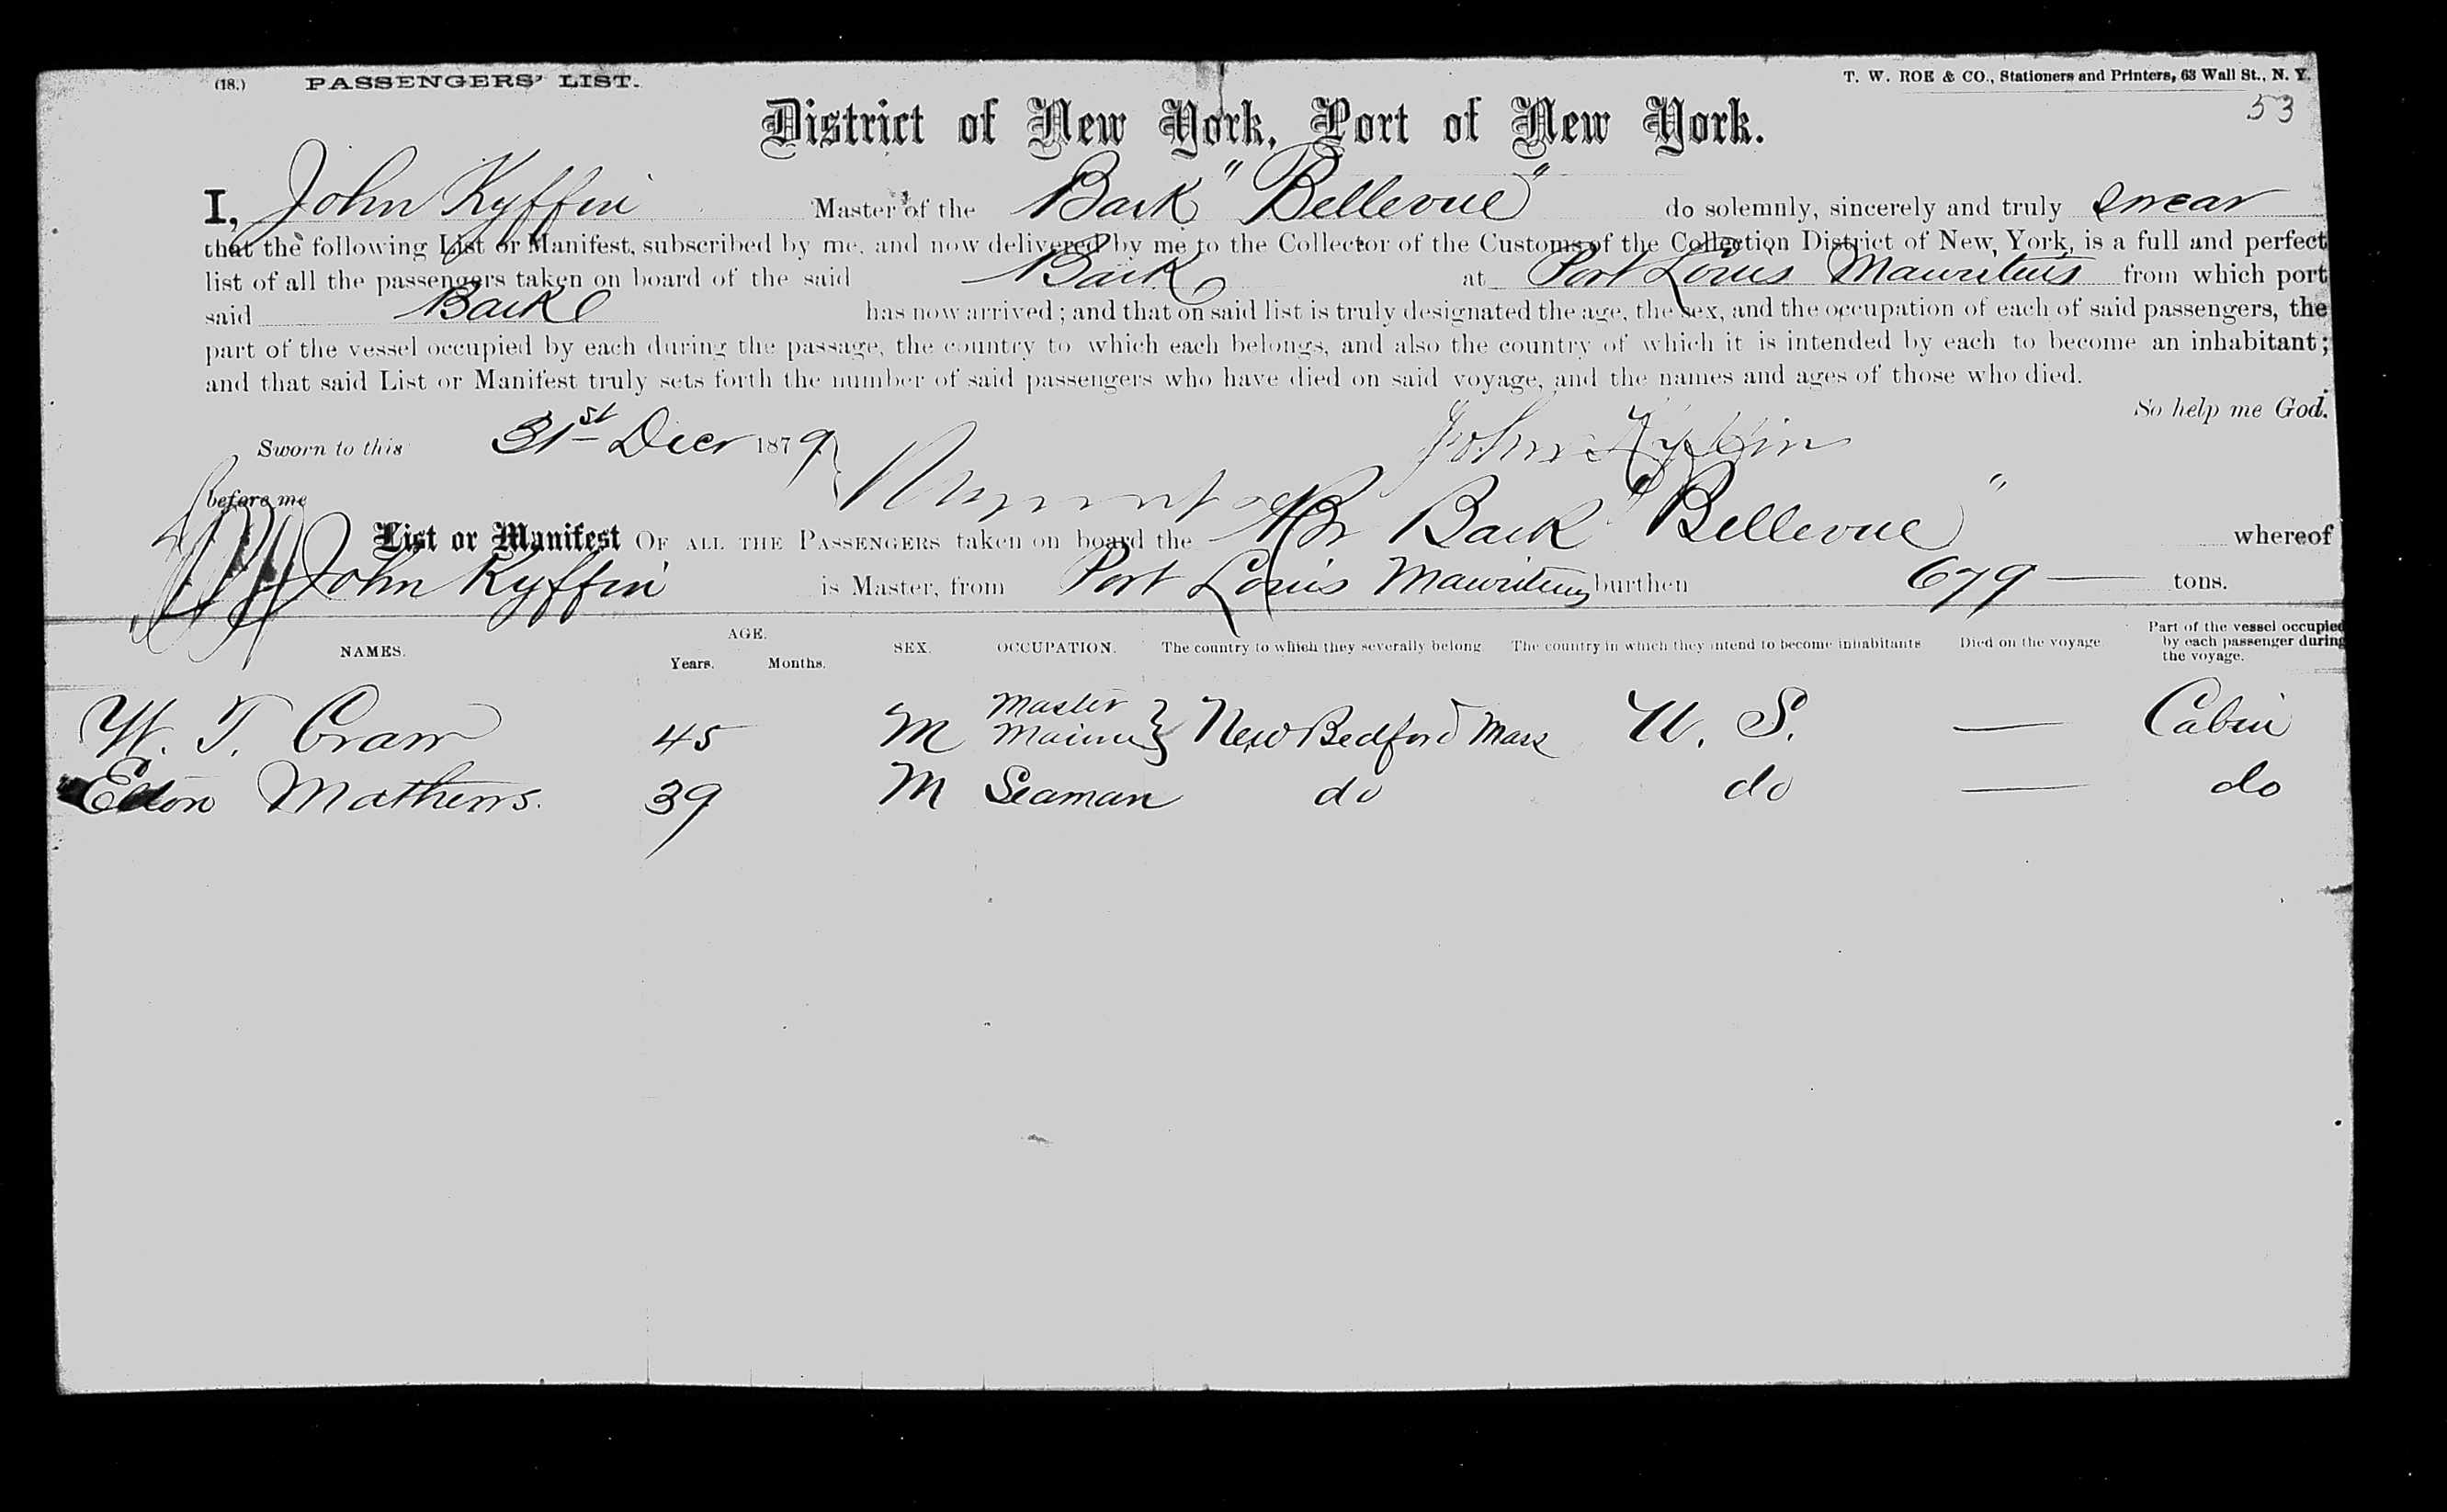 (18.) PASSENGERS' LIST. T. W. ROE & CO., Stationers and Printers, 63 Wall St., N. Y.
53
District of New York, Port of New York.
I, John Kyffin Master of the Bark "Bellevue" do solemnly, sincerely and truly swear
that the following List or Manifest, subscribed by me, and now delivered by me to the Collector of the Customs of the Collection District of New York, is a full and perfect
list of all the passengers taken on board of the said Bark at Port Louis Mauritius from which port
said Bark has now arrived; and that on said list is truly designated the age, the sex, and the occupation of each of said passengers, the
part of the vessel occupied by each during the passage, the country to which each belongs, and also the country of which it is intended by each to become an inhabitant;
and that said List or Manifest truly sets forth the number of said passengers who have died on said voyage, and the names and ages of those who died.
So help me God.
Sworn to this 31st Decr 1879 John Kyffin
before me
List or Manifest OF ALL THE PASSENGERS taken on board the Br Bark "Bellevue" whereof
John Kyffin is Master, from Port Louis Mauritius burthen 679 — tons.
NAMES. AGE. Years. Months. SEX. OCCUPATION. The country to which they severally belong. The country in which they intend to become inhabitants Died on the voyage Part of the vessel occupied by each passenger during the voyage.
W. T. 45 M Master Marine } New Bedford Mass U. S. — Cabin
Mathews. 39 M Seaman do do — do